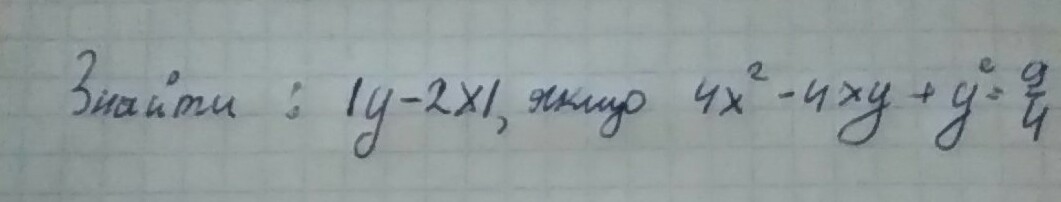 Знайти : |y-2x|, якщо 4x² - 4xy + y² = 9/4